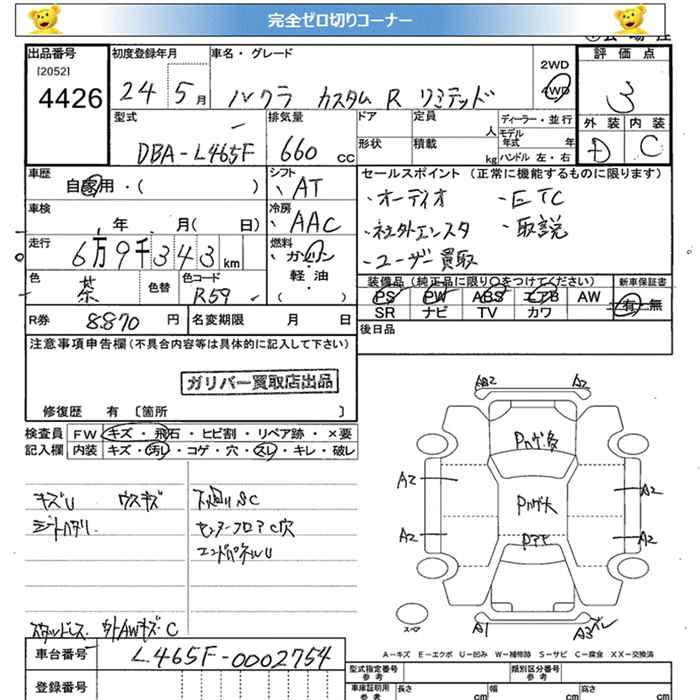 完全ゼロ切りコーナー
出品番号
[2052]
4426
初度登録年月
24 5月
車名・グレード
ソニカ カスタム R リミテッド
2WD
4WD
評価点
3
外装 内装
D C
型式
DBA-L465F
排気量
660 CC
ドア
形状
定員
人
積載
kg
ディーラー・並行
モデル
年式 年
ハンドル 左・右
車歴
自家用・( )
シフト
AT
車検
年 月( 日)
冷房
AAC
走行
6万9千343 km
燃料
ガソリン
軽・油
( )
色
茶
色替
色コード
R59
R券 8870 円
名変期限 月 日
セールスポイント (正常に機能するものに限ります)
・オーディオ ・ETC
・社外エンスタ ・取説
・ユーザー買取
装備品 (純正品に限り○をつけてください)
新車保証書
PS PW ABS エアB AW
SR ナビ TV カワ
有・無
後日品
注意事項申告欄 (不具合内容等は具体的に記入して下さい)
ガリバー買取店出品
修復歴 有 〔箇所 〕
検査員
記入欄
FW キズ・飛石・ヒビ割・リペア跡・×要
内装 キズ・汚レ・コゲ・穴・スレ・キレ・破レ
キズU ウスキズ 下廻りSC
シートヘタリ センターフロアC穴
エンドパネルU
スタッドレス 外AWキズ・C
A2
A2
A2
A2
A2
A1
A3
スペア
A-キズ E-エクボ U-凹み W-補修跡 S-サビ C-腐食 XX-交換済
車台番号
L465F-0002754
登録番号
型式指定番号
参考
類別区分番号
参考
車庫証明用
参考
長さ
cm
幅
cm
高さ
cm